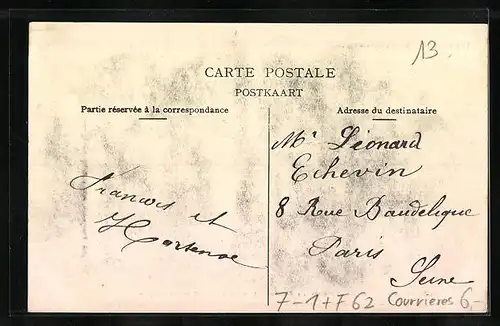 13.
CARTE POSTALE
POSTKAART
Partie réservée à la correspondance
Adresse du destinataire
Mr Léonard
Echevin
8 Rue Baudelique
Paris
Seine
François et
Hortense
7-1+F62 Courrières 6,-